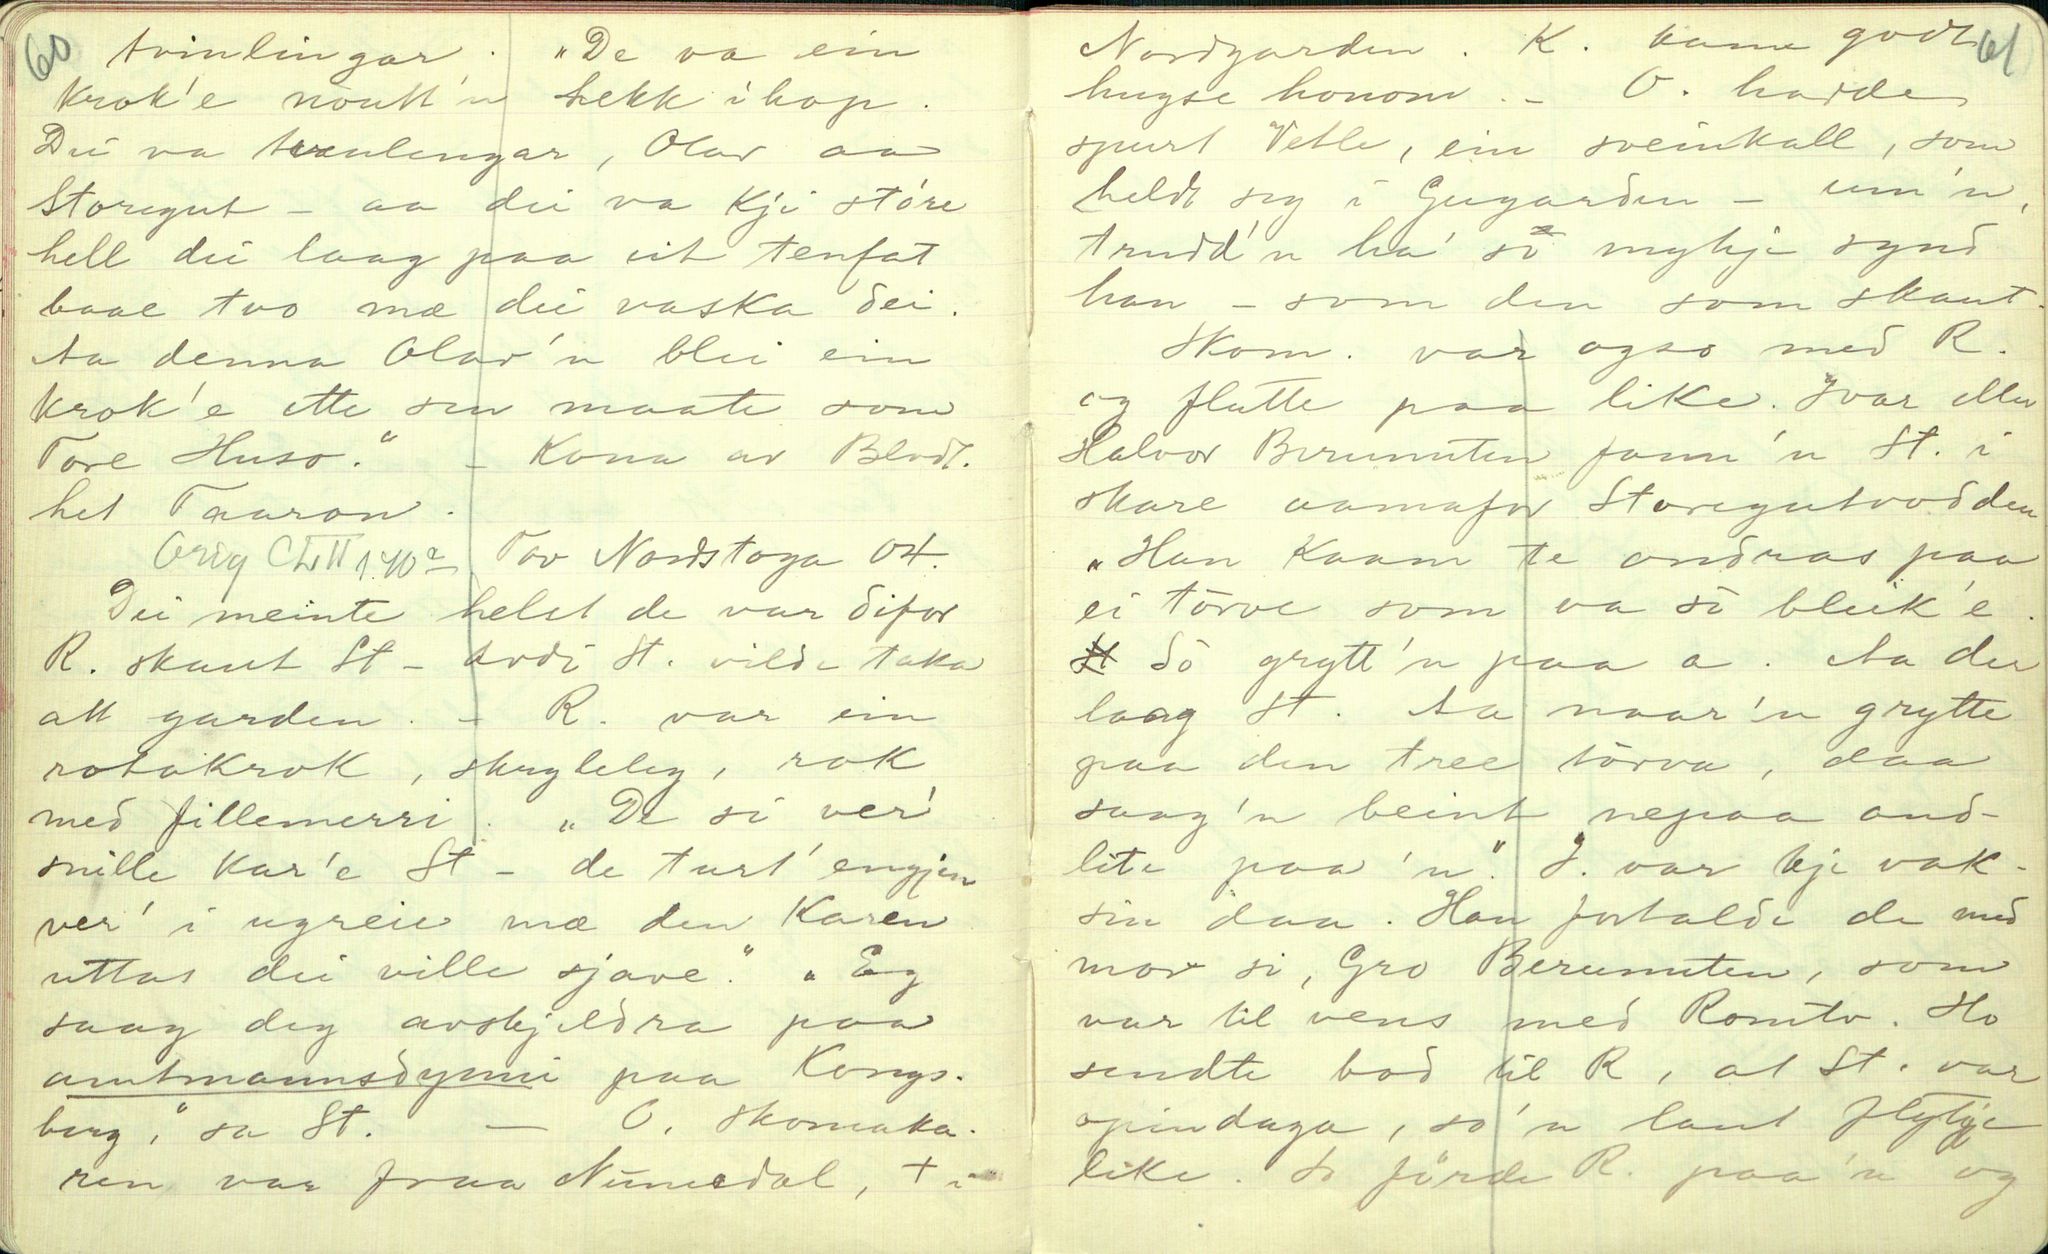 60
tvinlingar. "De va ein
krok'e nòutt'n hekk ihop.
Dei va tvenlengar, Olav aa
Storegut – aa dei va kji störe
hell dei laag paa eit tenfat
baae tvo mæ dei vaska dei.
Aa denna Olav'n blei ein
krok'e ette sen maate som
Tore Huso." – Kona av Blodt.
het Taaron.
Orig CLII 1.40 Tov Nordstoga 04.
Dei meinte helst de var difor
R. skaut St – avdi St. vilde taka
att garden. – R. var ein
rotakrok, skrybeleg, rak
med fillemerri. "De si ver'
snille kar'e St – de turt' engjen
ver' i ugreie mæ den karen
uttas dei ville sjave." "Eg
saag deg avskjeldra paa
amtmannsdynni paa Kongs-
berg," sa St. — O. Skomaka-
ren var fraa Numedal, + i
61
Nordgarden. K. kann godt
hugse honom. – O. hadde
spurt Vetle, ein sveinkall, som
heldt seg i Gugarden – um'n,
trudd'n ha' so mykje synd
han – som den som skaut.
Skom. var ogso med R.
og flutte paa like. Ivar eller
Halvor Berunuten fann'n St. i
skare aamafor Storegutvodden
"Han kaam te ondras paa
ei törve som va sò bleik'e.
Sò grytt'n paa a. Aa der
laag St. Aa naar'n grytte
paa den tree törva, daa
saag'n beint nepaa and-
lite paa'n." I. var kje vak-
sin daa. Han fortalde de med
mor si, Gro Berunuten, som
var til vens med Romtv. Ho
sendte bod til R, at St. var
opindaga, so'n laut flytje
like. So förde R. paa'n og